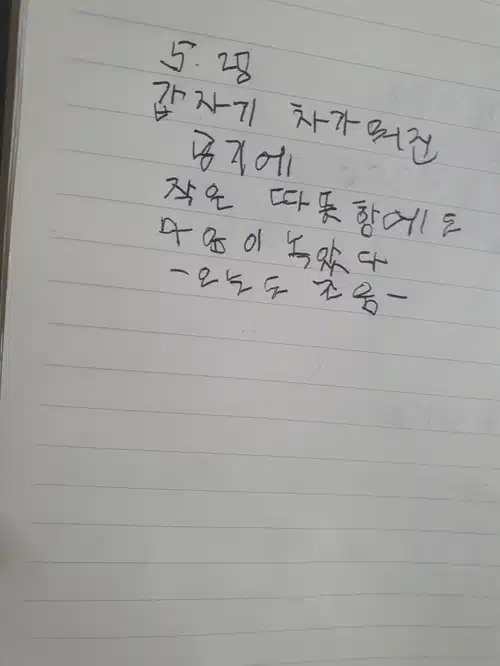 5. 29
갑자기 차가워진
공기에
작은 따뜻함에도
마음이 녹았다
-오늘도 조음-